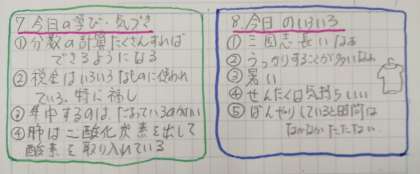 7 今日の学び・気づき
①分数の計算たくさんすれば
できるようになる
②税金はいろいろなものに使われ
ている。特に福し
③年中するのは
④肺は二酸化炭素を出して
酸素を取り入れている
8 今日のいろいろ
①三国志長いなぁ
②うっかりすることが多いなぁ
③暑い
④せんたく日気持ちいい
⑤ぼんやりしていると時間は
なかなかたたない